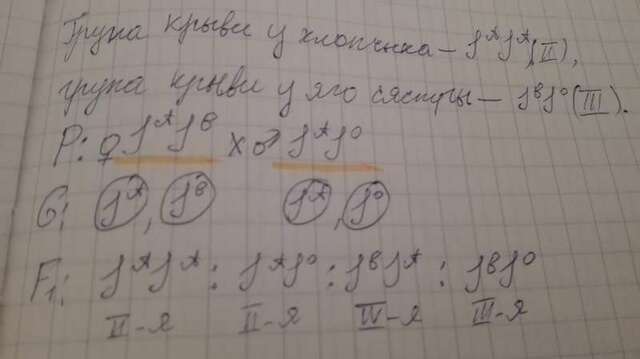 Група крыви у хлопчыка – JᴬJᴬ(II),
група крыви у яго сястры – JᴮJ⁰(III).
P: ♀ JᴬJᴮ x ♂ JᴬJ⁰
G: Jᴬ, Jᴮ Jᴬ, J⁰
F₁: JᴬJᴬ : JᴬJ⁰ : JᴮJᴬ : JᴮJ⁰
II-я II-я IV-я III-я